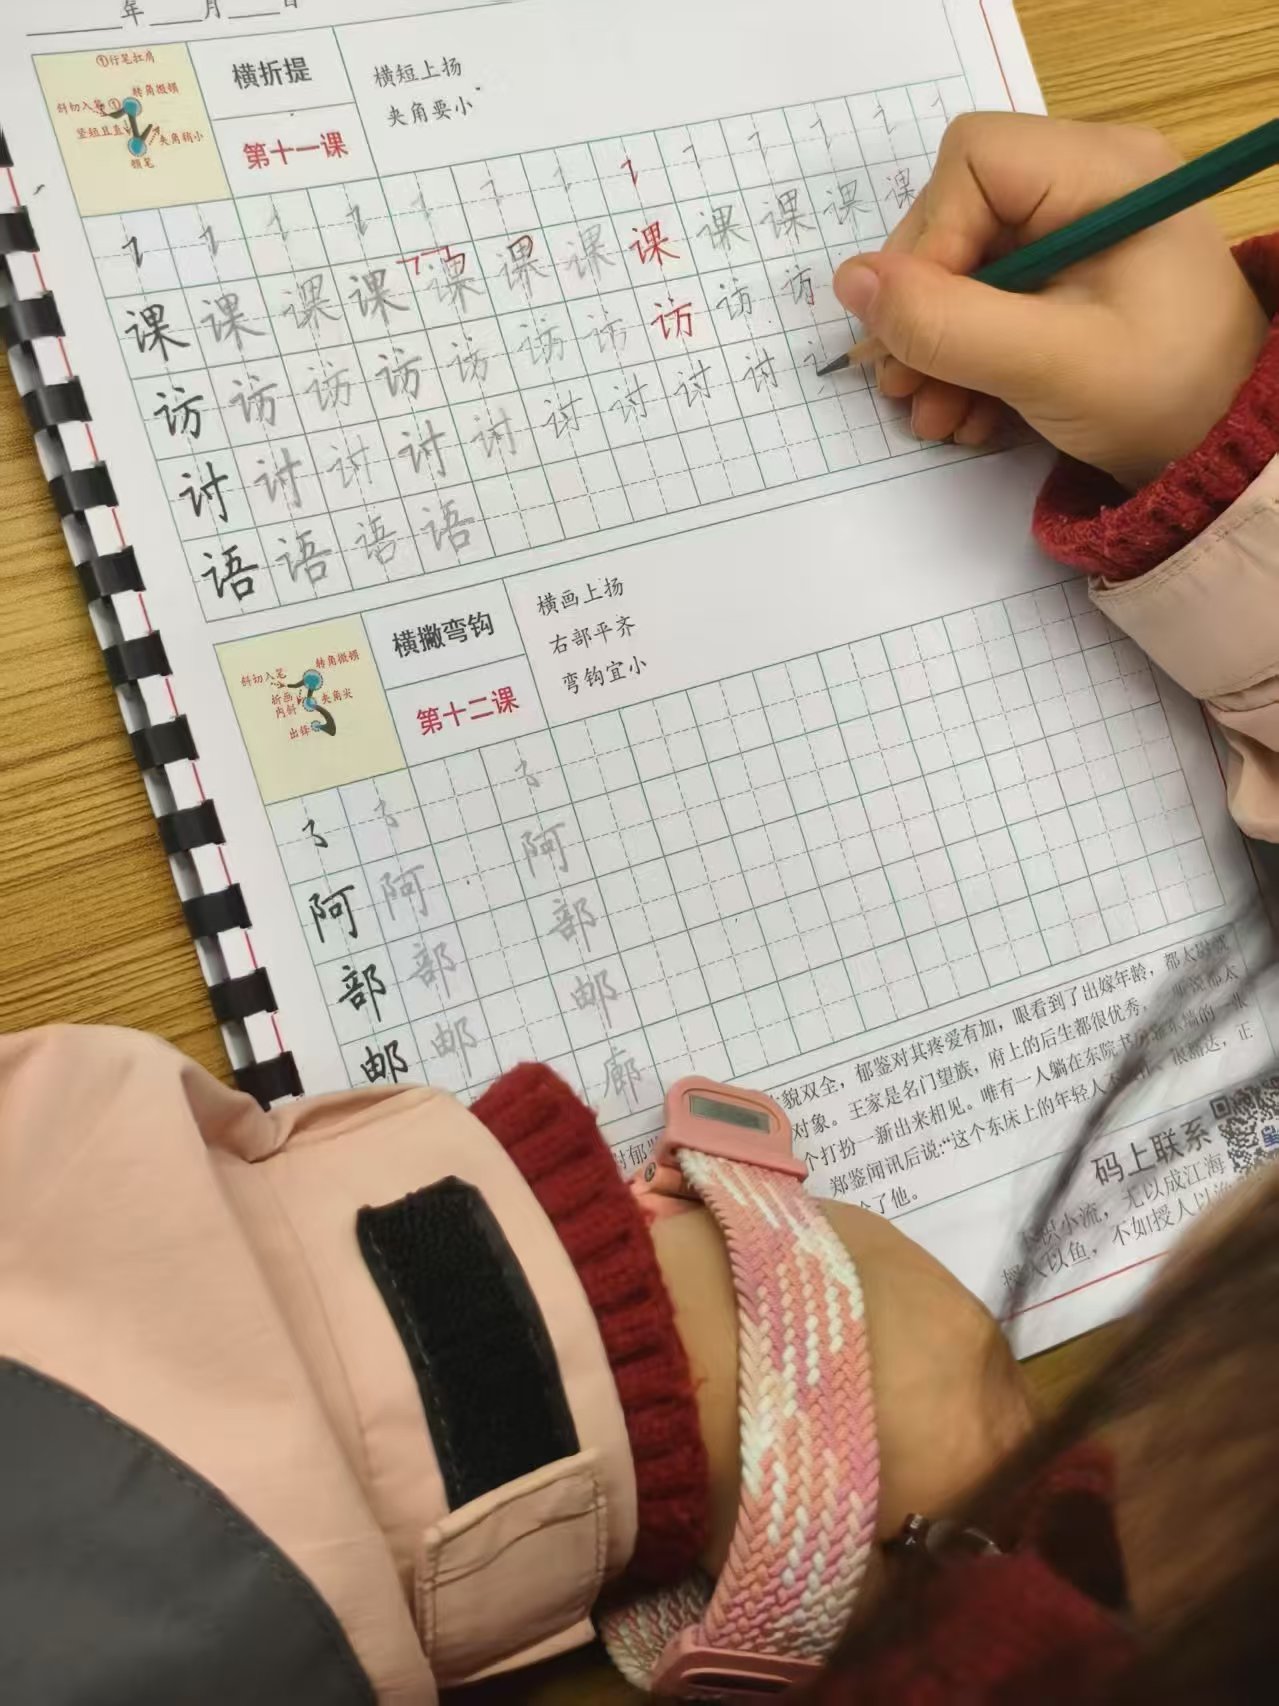 年 月 日
①行笔扛肩
斜切入笔 ① 转角微顿
竖短且直 夹角稍小
顿笔
横折提
第十一课
横短上扬
夹角要小
课 课 课 课 课 课 课 课 课 课 课 课
访 访 访 访 访 访 访 访 访 访
讨 讨 讨 讨 讨 讨 讨 讨 讨
语 语 语 语
斜切入笔 转角微顿
折画内斜 夹角尖
出锋
横撇弯钩
第十二课
横画上扬
右部平齐
弯钩宜小
阿 阿 阿
部 部 部
邮 邮 邮
廊
貌双全，郁鉴对其疼爱有加，眼看到了出嫁年龄，都太
对象。王家是名门望族，府上的后生都很优秀，
个打扮一新出来相见。唯有一人躺在东院书
郑鉴闻讯后说：“这个东床上的年轻人 很豁达，正
了他。
码上联系
小流，无以成江海
授人以鱼，不如授人以渔